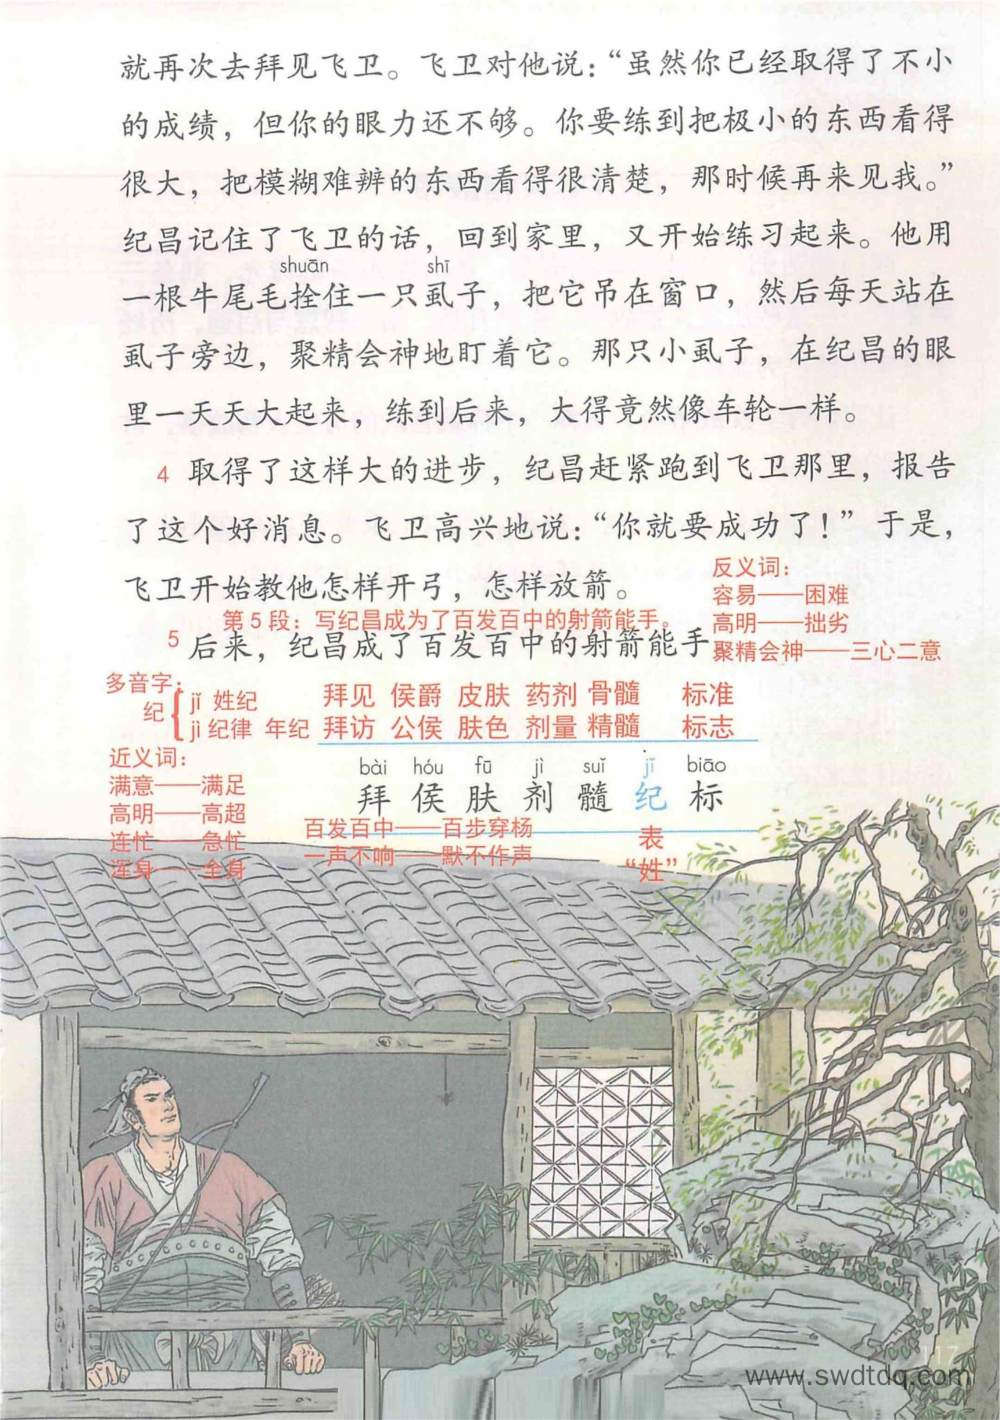 就再次去拜见飞卫。飞卫对他说：“虽然你已经取得了不小
的成绩，但你的眼力还不够。你要练到把极小的东西看得
很大，把模糊难辨的东西看得很清楚，那时候再来见我。”
纪昌记住了飞卫的话，回到家里，又开始练习起来。他用
shuān shī
一根牛尾毛拴住一只虱子，把它吊在窗口，然后每天站在
虱子旁边，聚精会神地盯着它。那只小虱子，在纪昌的眼
里一天天大起来，练到后来，大得竟然像车轮一样。
4 取得了这样大的进步，纪昌赶紧跑到飞卫那里，报告
了这个好消息。飞卫高兴地说：“你就要成功了！”于是，
飞卫开始教他怎样开弓，怎样放箭。
第5段：写纪昌成为了百发百中的射箭能手。
5 后来，纪昌成了百发百中的射箭能手
反义词：
容易——困难
高明——拙劣
聚精会神——三心二意
多音字：
纪
jǐ 姓纪
jì 纪律 年纪
拜见 侯爵 皮肤 药剂 骨髓 标准
拜访 公侯 肤色 剂量 精髓 标志
bài hóu fū jì suǐ jǐ biāo
拜 侯 肤 剂 髓 纪 标
表
“姓”
近义词：
满意——满足
高明——高超
连忙——急忙
浑身——全身
百发百中——百步穿杨
一声不响——默不作声
117
www.swdtdq.com